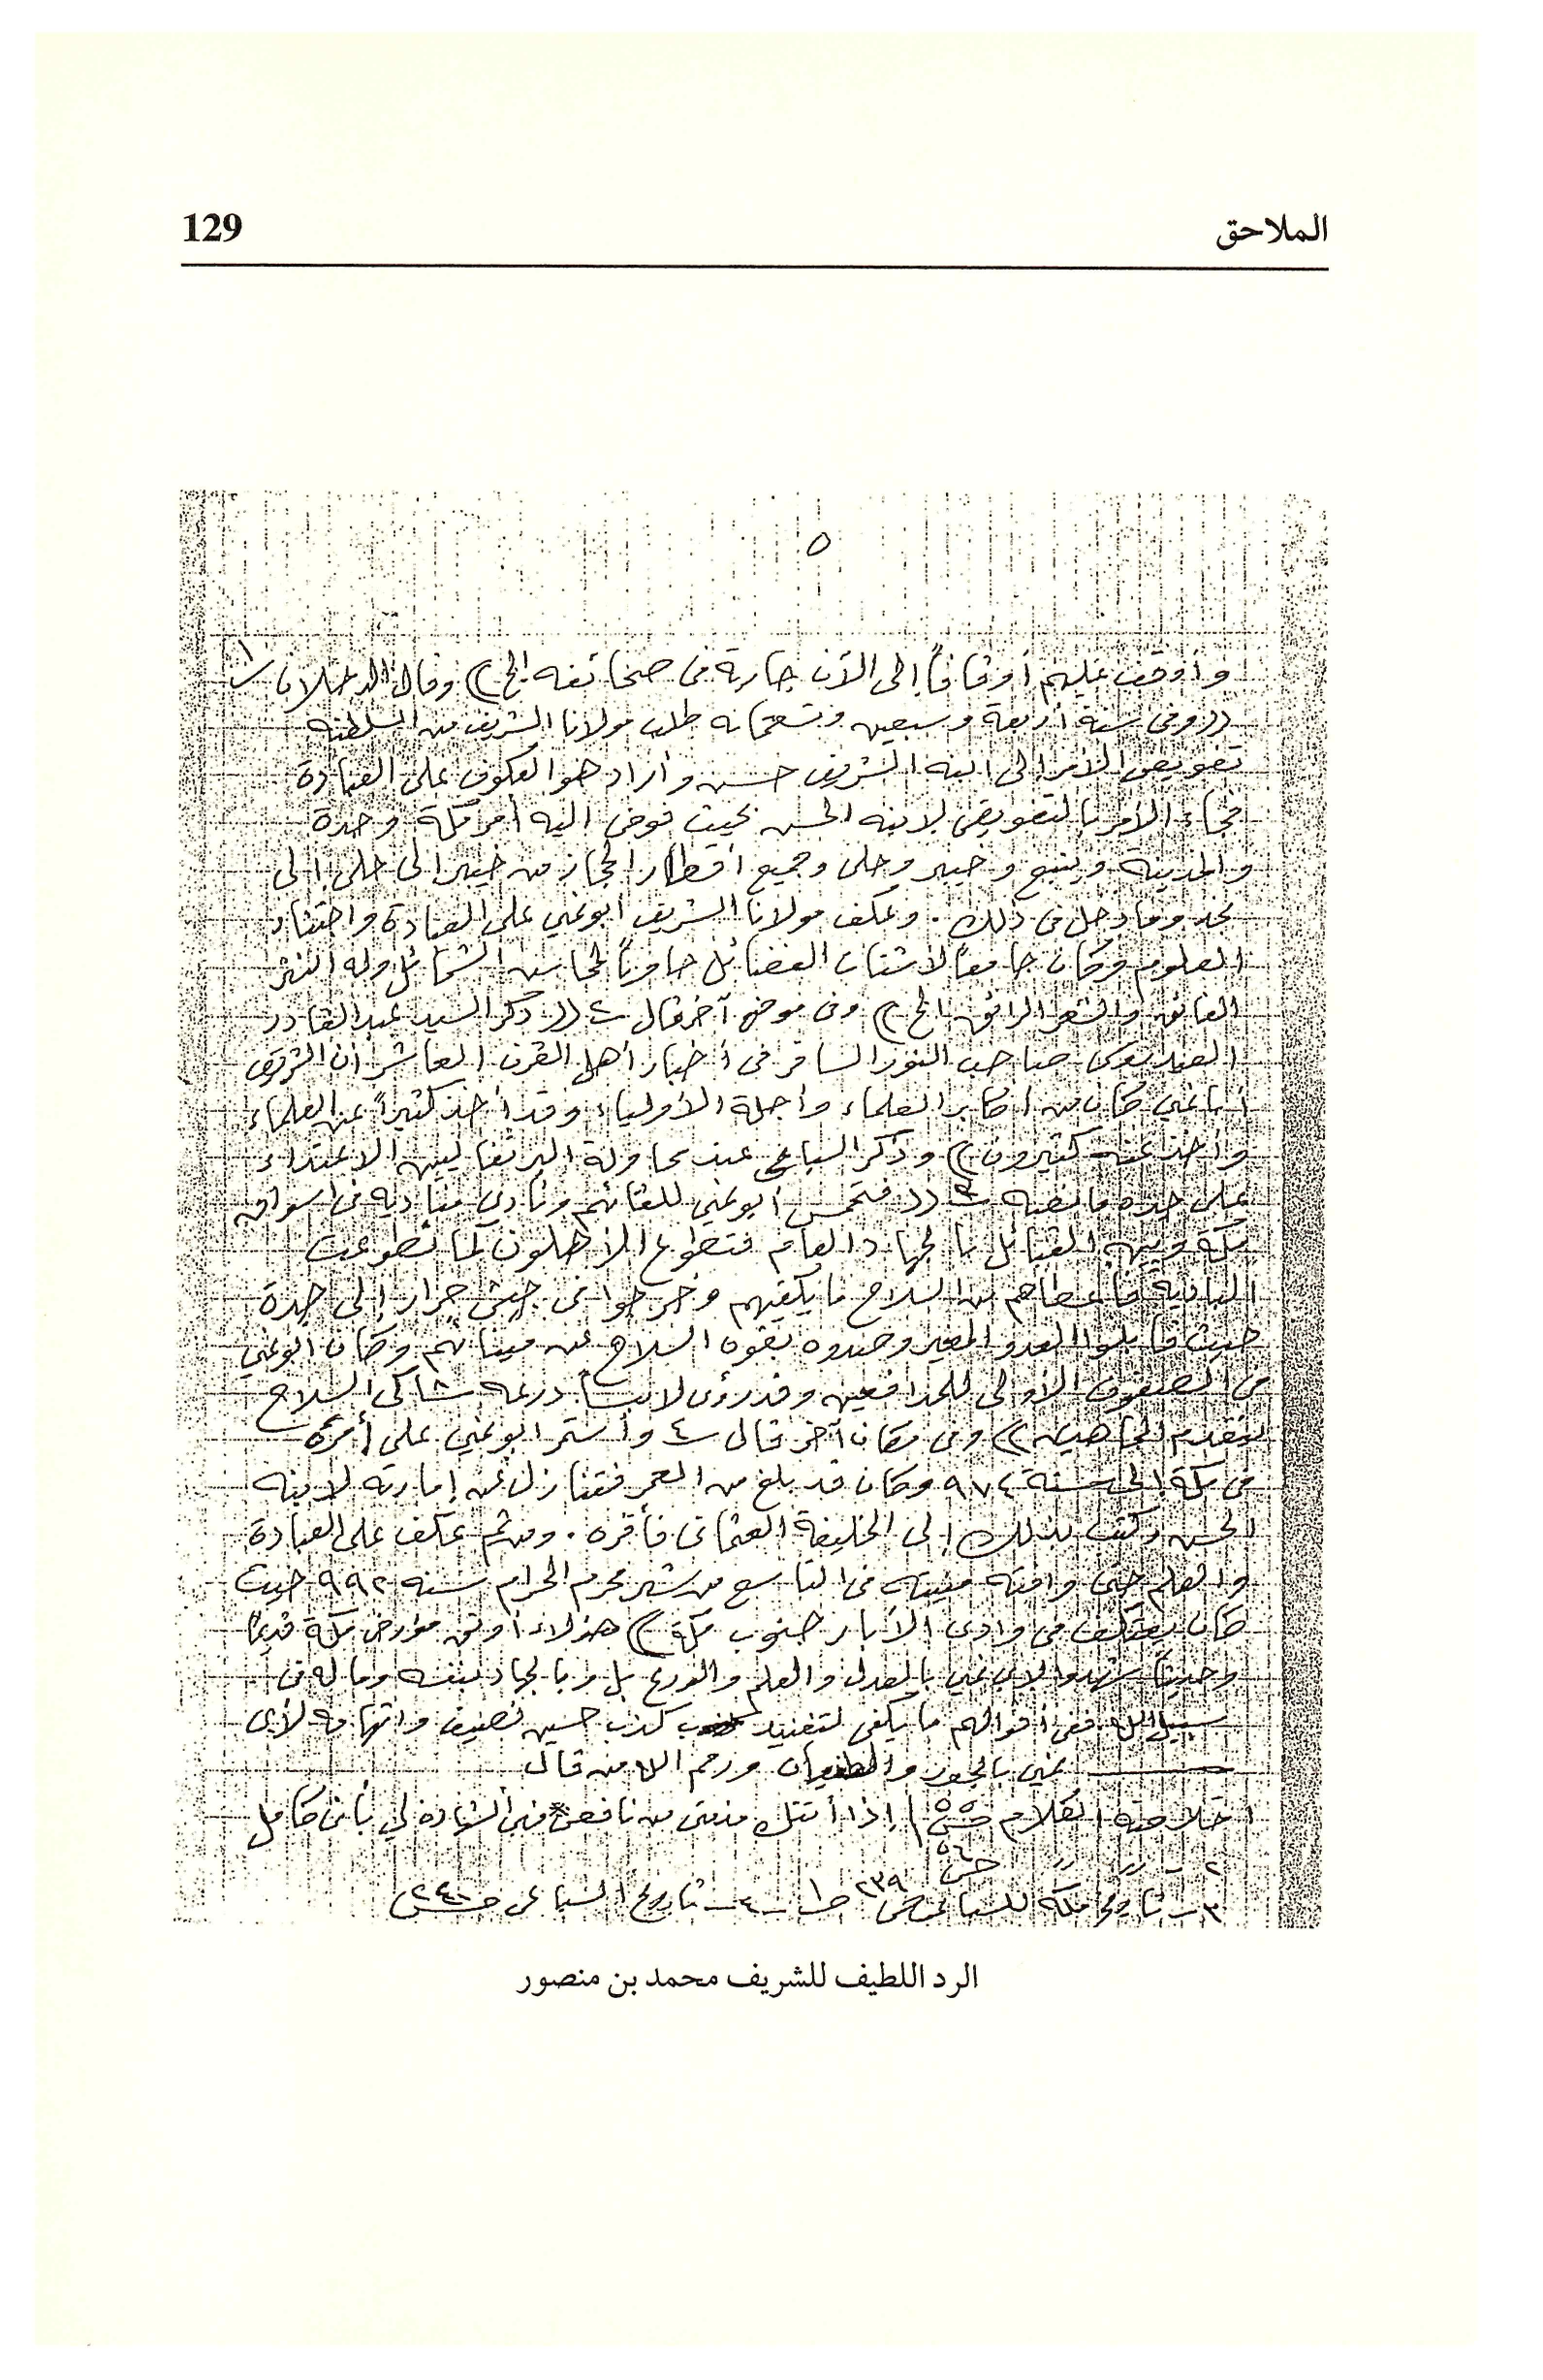 الملاحق
129
٥
وأوقف عليهم أوقافاً إلى الآن جارية في صحائفه الخ)) وقال الدحلان ١
((وفي سنة أربعة وسبعين وتسعمائه طلب مولانا الشريف من السلطنه
تفويض الأمر إلى ابنه الشريف حسن وأراد هو العكوف على العبادة
فجاء الأمر بالتفويض لابنه الحسن بحيث فوض اليه أمر مكة وجدة
والمدينة وينبع وخيبر وحلى وجميع أقطار الحجاز من خيبر إلى حلى إلى
نجد وما دخل في ذلك. وعكف مولانا الشريف ابونمي على العبادة واقتناء
العلوم وكان جامعاً لاشتات الفضائل حاوياً لمحاسن الشمائل وله النثر
الفائق والشعر الرائق الخ)) وفي موضع آخر قال ((ذكر السيد عبدالقادر
العيدروس صاحب النور السافر في أخبار أهل القرن العاشر أن الشريف
أبا نمي كان من أكابر العلماء وأجلة الأولياء وقد أخذ كثيراً عن العلماء
وأخذ عنه كثيرون)) وذكر السباعي عند محاولة البرتغاليين الاعتداء
على جده ما نصه ٣ ((فتحمس أبونمي للقائهم ونادى مناديه في اسواق
مكة وبين القبائل بالجهاد العام فتطوع الأهلون كما تطوعت
البادية فأعطاهم من السلاح ما يكفيهم وخرجوا في جيش جرار إلى جدة
حيث قابلوا العدو المغير وصدوه بقوه السلاح عن مينائهم وكان ابونمي
في الصفوف الأولى للمدافعين وقد رؤى لابساً درعه شاكى السلاح
يتقدم المجاهدين)) وفي مكان آخر قال ٤ وأستمر ابونمي على أمره
في مكة إلى سنة ٩٧٤ وكان قد بلغ من العمر فتنازل عن إمارته لابنه
الحسن وكتب بذلك إلى الخليفة العثماني فأقره. ومن ثم عكف على العبادة
والعلم حتى وافته منيته في التاسع من شهر محرم الحرام سنه ٩٩٢ حيث
كان يعتكف في وادى الأبار جنوب مكة)) هؤلاء أوثق مؤرخي مكة قديماً
وحديثاً شهدوا لابي نمي بالعدل والعلم والورع بل وبالجهاد بنفسه وماله في
سبيل الله ففي أقوالهم ما يكفي لتفنيد كذب حسين نصيف واتهامه لأبى
نمي بالجور والطغيان ورحم الله من قال
١ خلاصة الكلام ص٥٥ إذا أتتك مذمتي من ناقص * فهي الشهادة لي بأنى كامل
٢ - // // ص٥٦
٣ - تاريخ مكه للسباعي ص ٢٣٩ ط١ - ٤ - تاريخ السباعي ص٢٤٠
الرد اللطيف للشريف محمد بن منصور